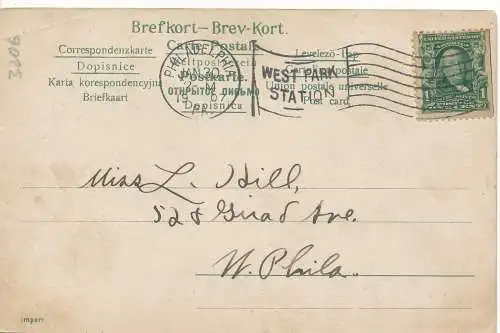 3206
Brefkort—Brev-Kort.
Carte Postale
Correspondenzkarte
Weltpostverein
Levelező-lap
Dopisnice
Postkarte.
Karta korespondencyjna
ОТКРЫТОЕ ПИСЬМО
Union postale universelle
Briefkaart
Dopisnica
Post card
PHILADELPHIA
JAN 20
M
1907
PA.
WEST PARK
STATION
1 1
Miss L. Hill,
528 Girard Ave.
W. Phila.
import